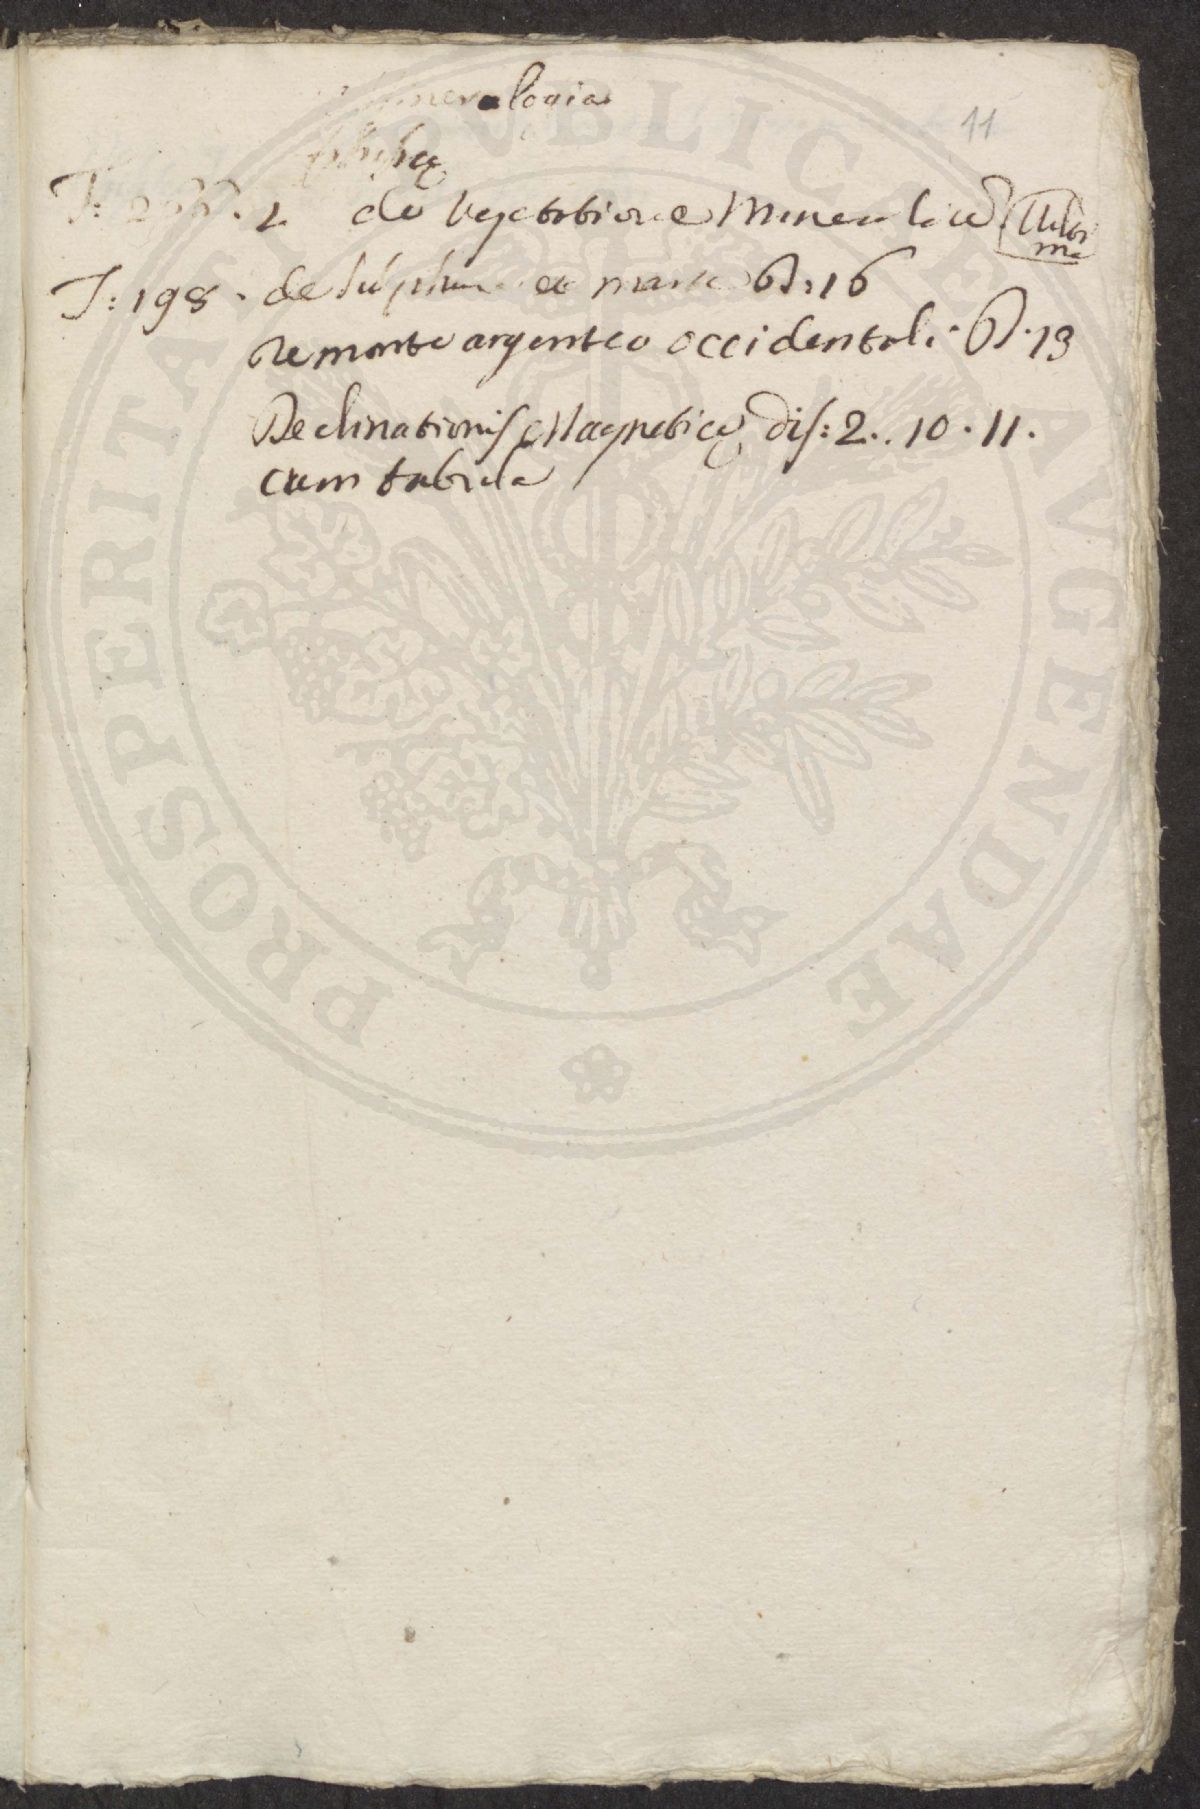 mineralogia
11
physicę
T: 2 de Vegetatione Mineralium Ultima
T: 198. de sulphure et marte D: 16
De monte argenteo occidentali. D. 13
Declinationis Magneticę dis: 2.. 10. 11.
cum tabula
PROSPERITATI PUBLICAE AUGENDAE